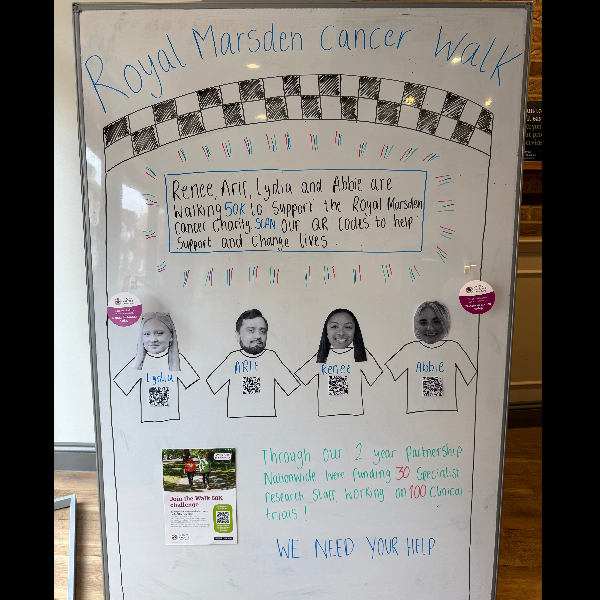 Royal Marsden Cancer Walk
Renee, Arif, Lydia and Abbie are
walking 50K to support the Royal Marsden
cancer charity. SCAN our QR codes to help
support and change lives.
Lydia
ARIF
Renee
Abbie
Through our 2 year partnership
Nationwide were funding 30 specialist
research staff working on 100 clinical
trials!
WE NEED YOUR HELP
Join the Walk 50K
challenge